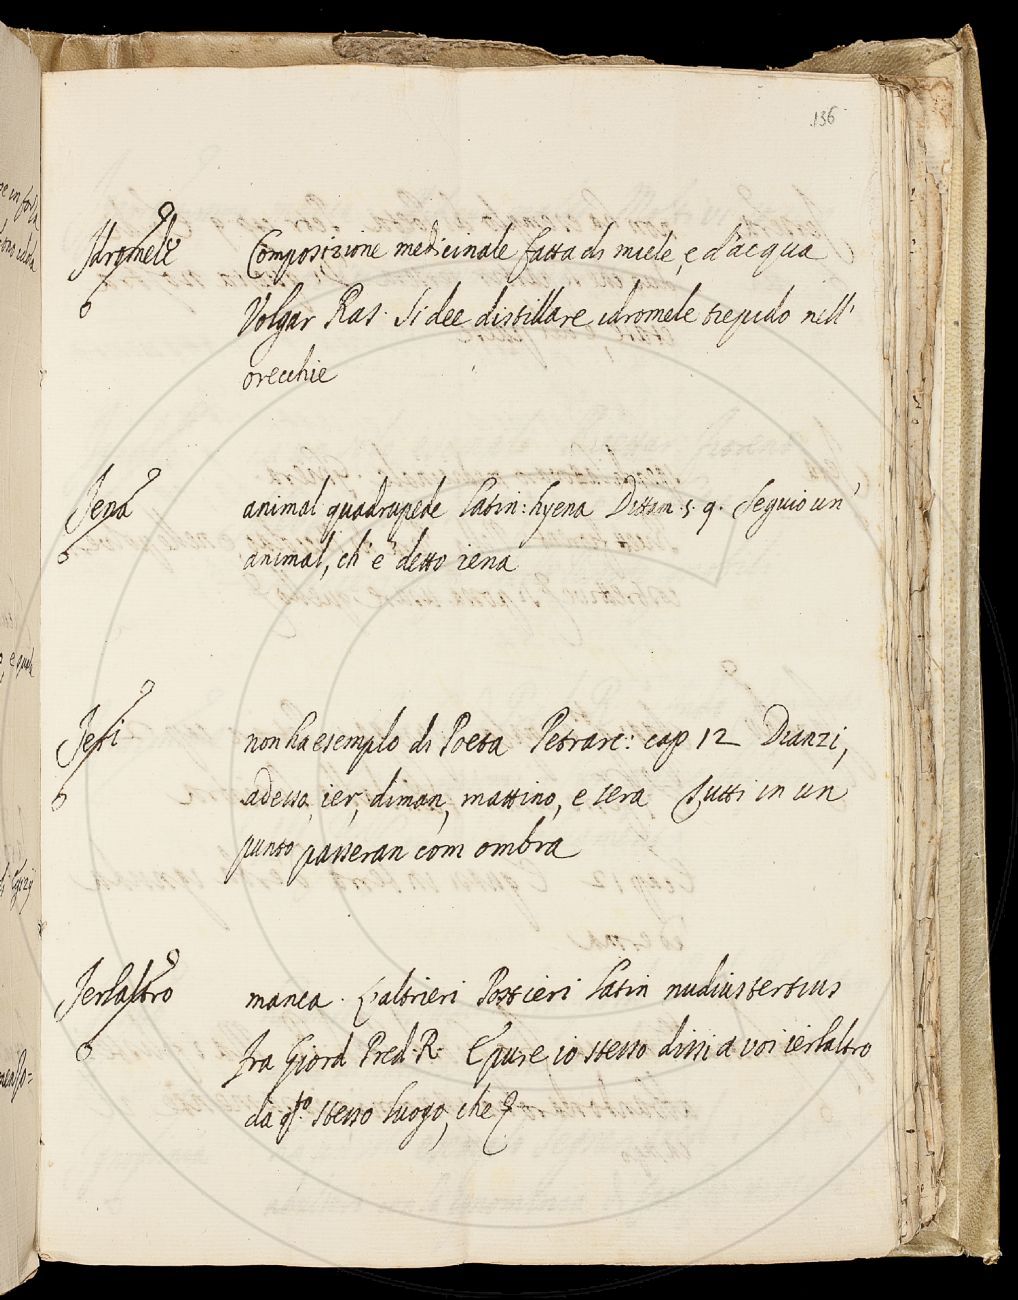 136
Idromele Composizione medicinale fatta di miele, e d'acqua
Volgar Ras. Si dee distillare idromele tiepido nell'
orecchie
Jena animal quadrupede Latin: hyena Dittam. 5. 9. Seguio un'
animal, ch'è detto iena
Jeri non ha esemplo di Poeta Petrarc: cap 12 Dianzi,
adesso, ier, diman, mattino, e sera Tutti in un
punto passeran com ombra
Jerlaltro manca. L'altrieri Postieri Latin nudiustertius
fra Giord Pred. R. E pure io stesso dissi a voi ierlaltro
da qsto stesso luogo, che